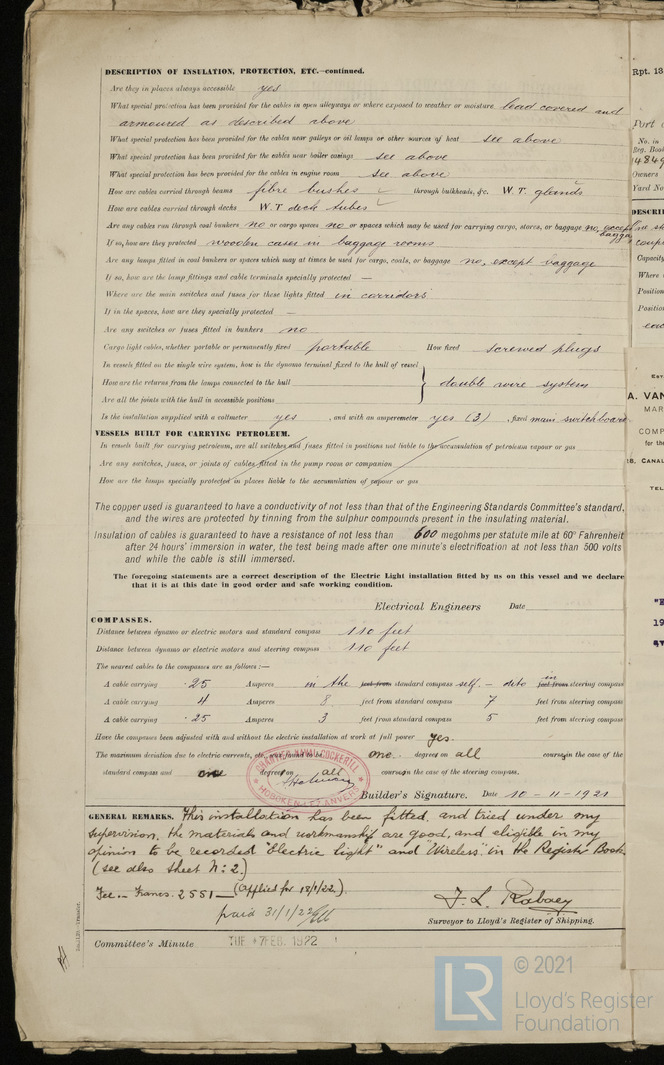 DESCRIPTION OF INSULATION, PROTECTION, ETC.—continued.
Are they in places always accessible yes
What special protection has been provided for the cables in open alleyways or where exposed to weather or moisture lead covered and
armoured as described above
What special protection has been provided for the cables near galleys or oil lamps or other sources of heat see above
What special protection has been provided for the cables near boiler casings see above
What special protection has been provided for the cables in engine room see above
How are cables carried through beams fibre bushes through bulkheads, &c. W.T. glands
How are cables carried through decks W.T deck tubes
Are any cables run through coal bunkers no or cargo spaces no or spaces which may be used for carrying cargo, stores, or baggage no, except
baggage
If so, how are they protected wooden cases in baggage rooms
Are any lamps fitted in coal bunkers or spaces which may at times be used for cargo, coals, or baggage no, except baggage
If so, how are the lamp fittings and cable terminals specially protected —
Where are the main switches and fuses for these lights fitted in corridors
If in the spaces, how are they specially protected —
Are any switches or fuses fitted in bunkers no
Cargo light cables, whether portable or permanently fixed portable How fixed screwed plugs
In vessels fitted on the single wire system, how is the dynamo terminal fixed to the hull of vessel
How are the returns from the lamps connected to the hull double wire system
Are all the joints with the hull in accessible positions
Is the installation supplied with a voltmeter yes, and with an amperemeter yes (3), fixed main switchboard
VESSELS BUILT FOR CARRYING PETROLEUM.
In vessels built for carrying petroleum, are all switches and fuses fitted in positions not liable to the accumulation of petroleum vapour or gas
Are any switches, fuses, or joints of cables fitted in the pump room or companion
How are the lamps specially protected in places liable to the accumulation of vapour or gas
The copper used is guaranteed to have a conductivity of not less than that of the Engineering Standards Committee's standard,
and the wires are protected by tinning from the sulphur compounds present in the insulating material.
Insulation of cables is guaranteed to have a resistance of not less than 600 megohms per statute mile at 60° Fahrenheit
after 24 hours' immersion in water, the test being made after one minute's electrification at not less than 500 volts
and while the cable is still immersed.
The foregoing statements are a correct description of the Electric Light installation fitted by us on this vessel and we declare
that it is at this date in good order and safe working condition.
Electrical Engineers Date
COMPASSES.
Distance between dynamo or electric motors and standard compass 110 feet
Distance between dynamo or electric motors and steering compass 110 feet
The nearest cables to the compasses are as follows:—
A cable carrying .25 Amperes in the feet from standard compass self. – deto in feet from steering compass
A cable carrying 4 Amperes 8 feet from standard compass 7 feet from steering compass
A cable carrying .25 Amperes 3 feet from standard compass 5 feet from steering compass
Have the compasses been adjusted with and without the electric installation at work at full power yes.
The maximum deviation due to electric currents, etc. was found to be one. degrees on all course in the case of the
standard compass and one degrees on all course in the case of the steering compass.
CHANTIER NAVAL COCKERILL
HOBOKEN LEZ ANVERS
Builder's Signature. Date 10-11-1921
GENERAL REMARKS. This installation has been fitted, and tried under my
supervision, the materials and workmanship are good, and eligible in my
opinion to be recorded "Electric Light" and "Wireless" in the Register Book
(see also sheet No: 2.)
Fee — Francs. 2551— (Applied for 18/1/22).
paid 31/1/22
F. L. Rabaey
Surveyor to Lloyd's Register of Shipping.
Committee's Minute TUE 7 FEB. 1922
Rpt. 13
Port
No. in
Reg. Book
Owners
Yard No
DESCRI
Capacity
Where
Position
Position
A. VAN
MAR
COMP
for the
CANAL
TEL
LR
© 2021
Lloyd's Register
Foundation